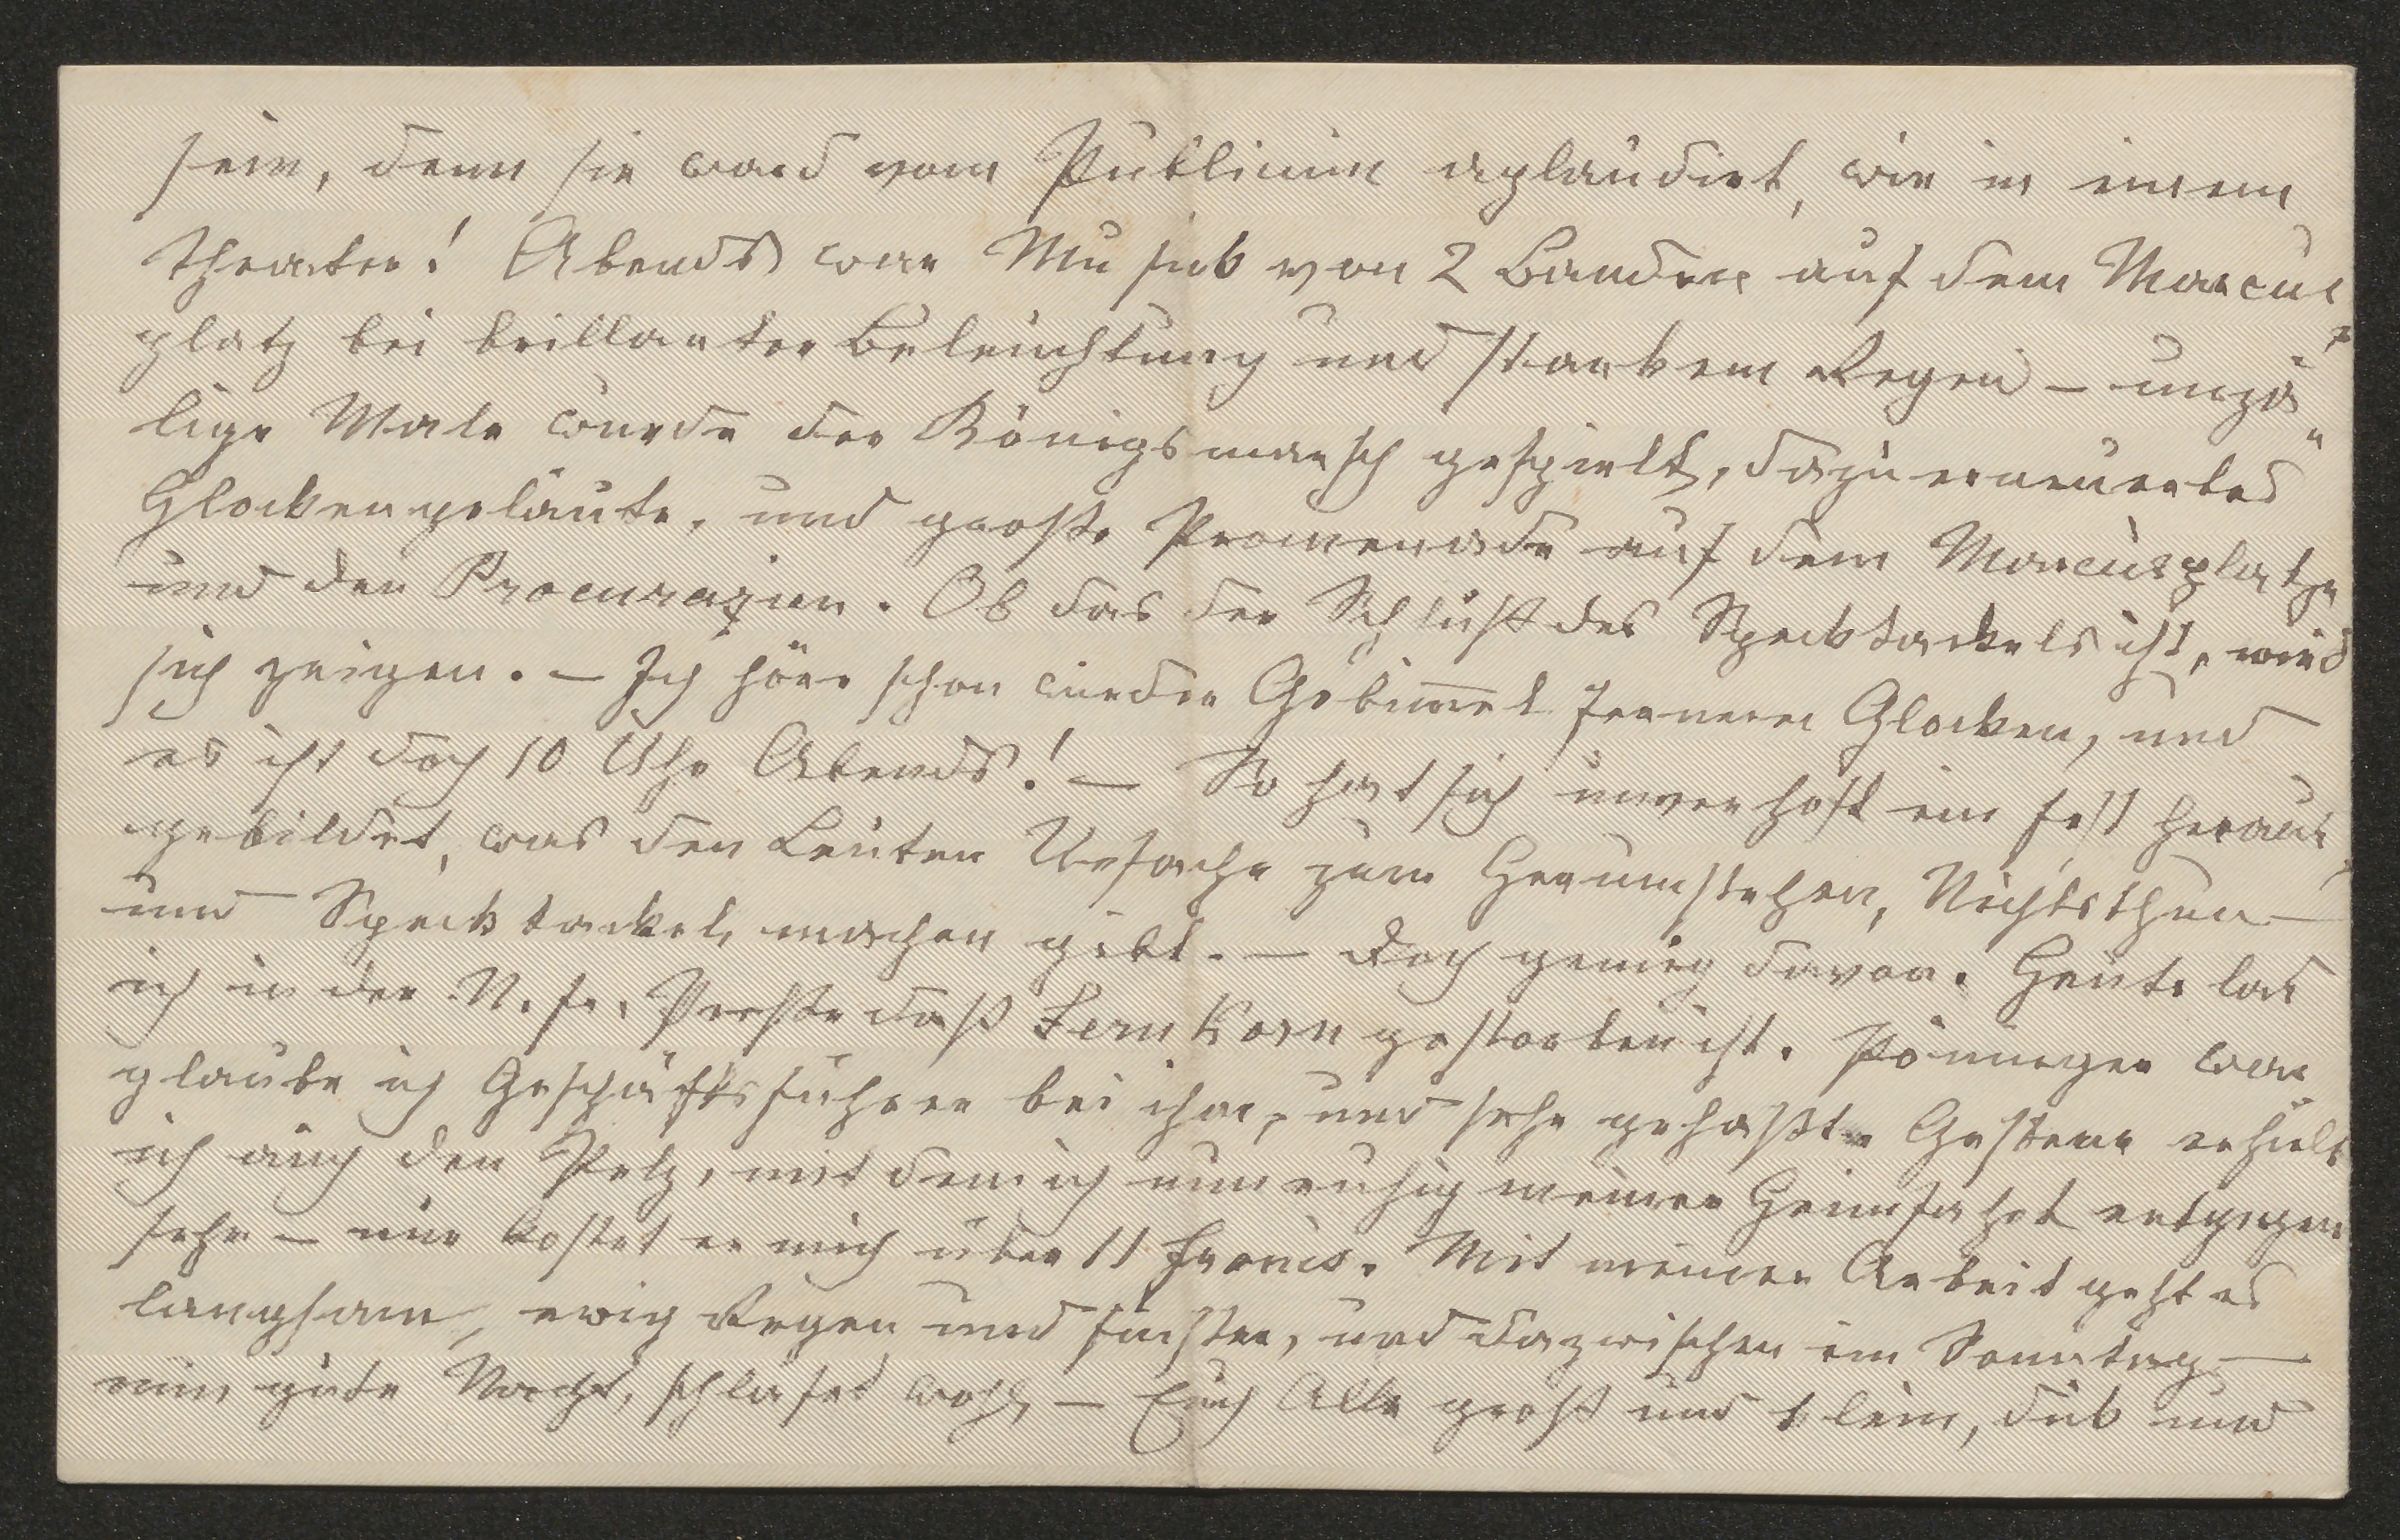 sein, denn sie ward vom Publicum aplaudirt, wie in einem
Theater! Abends war Musik von 2 Banden auf dem Marcus-
platz bei brillanter Beleuchtung und starkem Regen – unzä-
lige Male wurde der Königsmarsch gespielt, dazu erneuertes
Glockengeläute, und große Promenade auf dem Marcusplatze
und den Procurazien. Ob das der Schluß des Specktackels ist, wird
sich zeigen. – Ich höre schon wieder Gebimmel fernerer Glocken, und
es ist doch 10 Uhr Abends! – So hat sich unverhoft ein Fest heraus-
gebildet, was den Leuten Ursache zum Herumstehen, Nichtsthun –
und Specktackel machen gibt. – Doch genug davon. Heute las
ich in der N. fr. Preße daß Fernkorn gestorben ist. Pönninger war
glaube ich Geschäftsführer bei ihm, und sehr gehaßt. Gestern erhielt
ich auch den Pelz, mit dem ich nun ruhig meiner Heimfahrt entgegen
sehe – nur kostet er mich über 11 Francs. Mit meiner Arbeit geht es
langsam, ewig Regen und finster, und dazwischen ein Sonntag –
nun gute Nacht, schlafet wohl – Euch Alle groß und klein, dick und